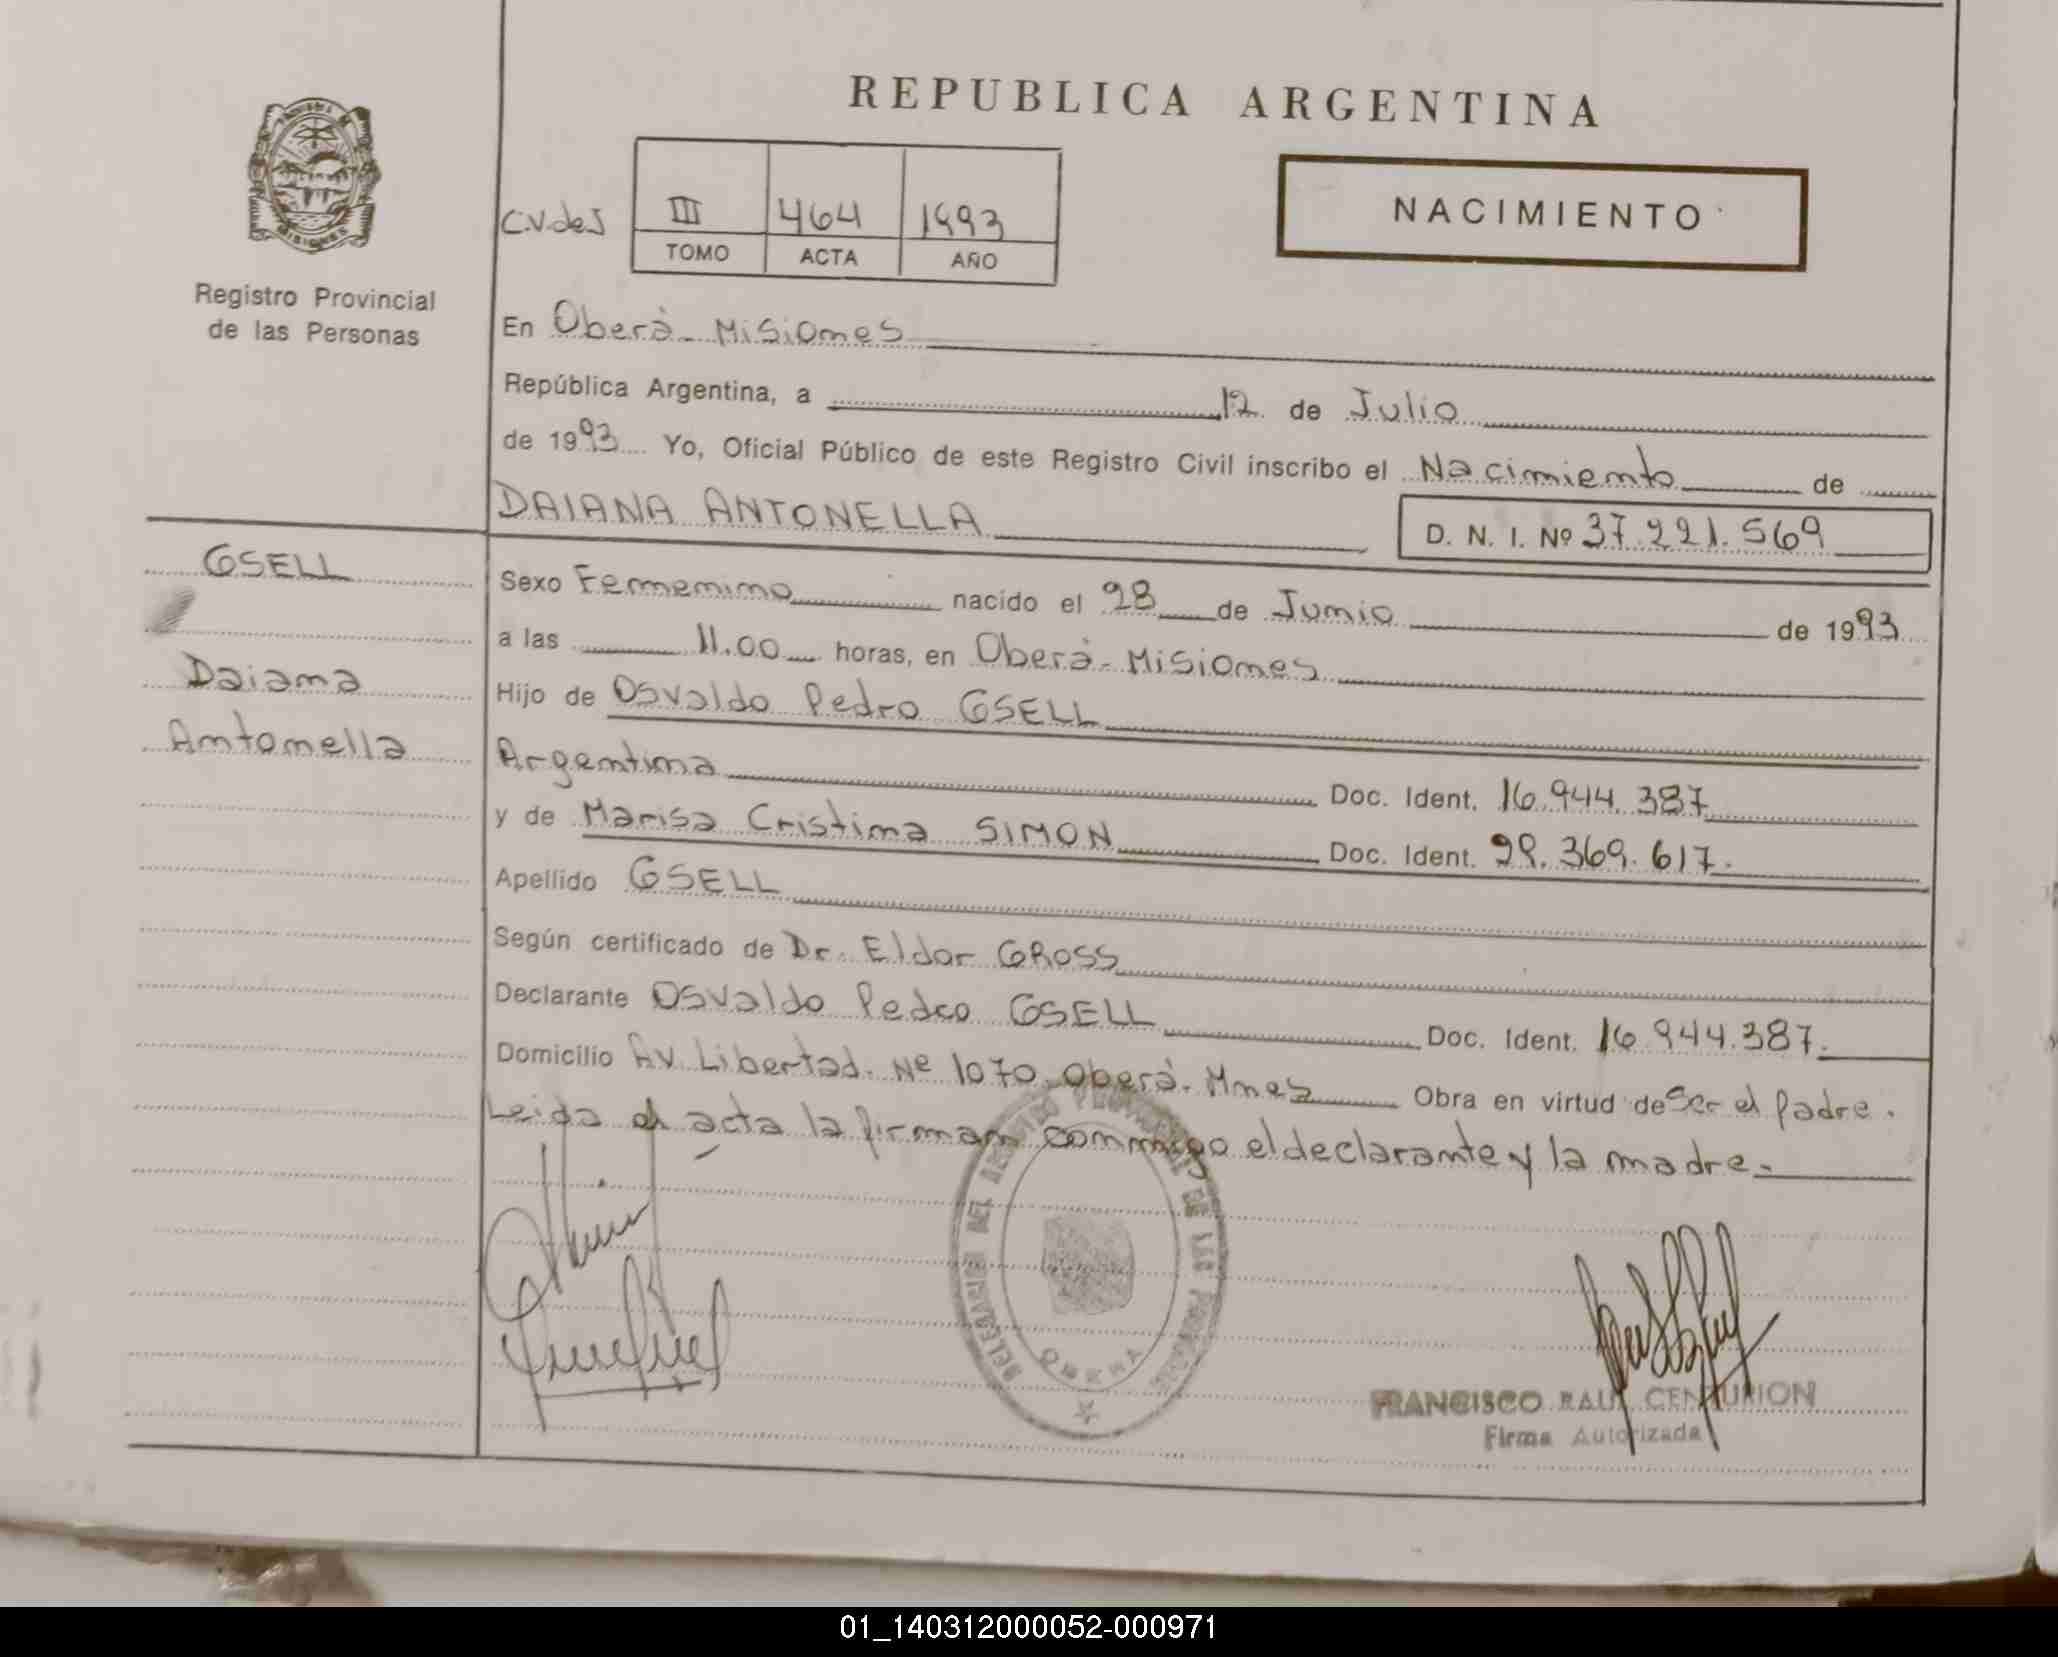 REPUBLICA ARGENTINA
NACIMIENTO
MISIONES
Registro Provincial
de las Personas
C.V.deJ
III 464 1993
TOMO ACTA AÑO
En Oberá - Misiones
República Argentina, a 12 de Julio
de 1993 Yo, Oficial Público de este Registro Civil inscribo el Nacimiento de
DAIANA ANTONELLA D. N. I. Nº 37.221.569
GSELL
Daiana
Antonella
Sexo Femenino nacido el 28 de Junio de 1993
a las 11.00 horas, en Oberá - Misiones
Hijo de Osvaldo Pedro GSELL
Argentina Doc. Ident. 16.944.387
y de Marisa Cristina SIMON Doc. Ident. 22.369.617.
Apellido GSELL
Según certificado de Dr. Eldor GROSS
Declarante Osvaldo Pedro GSELL Doc. Ident. 16.944.387.
Domicilio Av. Libertad. Nº 1070. Oberá. Mnes Obra en virtud de Ser el Padre.
Leida el acta la firman conmigo el declarante y la madre.
DELEGACION DEL REGISTRO PROVINCIAL DE LAS PERSONAS
FRANCISCO RAUL CENTURION
Firma Autorizada
01_140312000052-000971